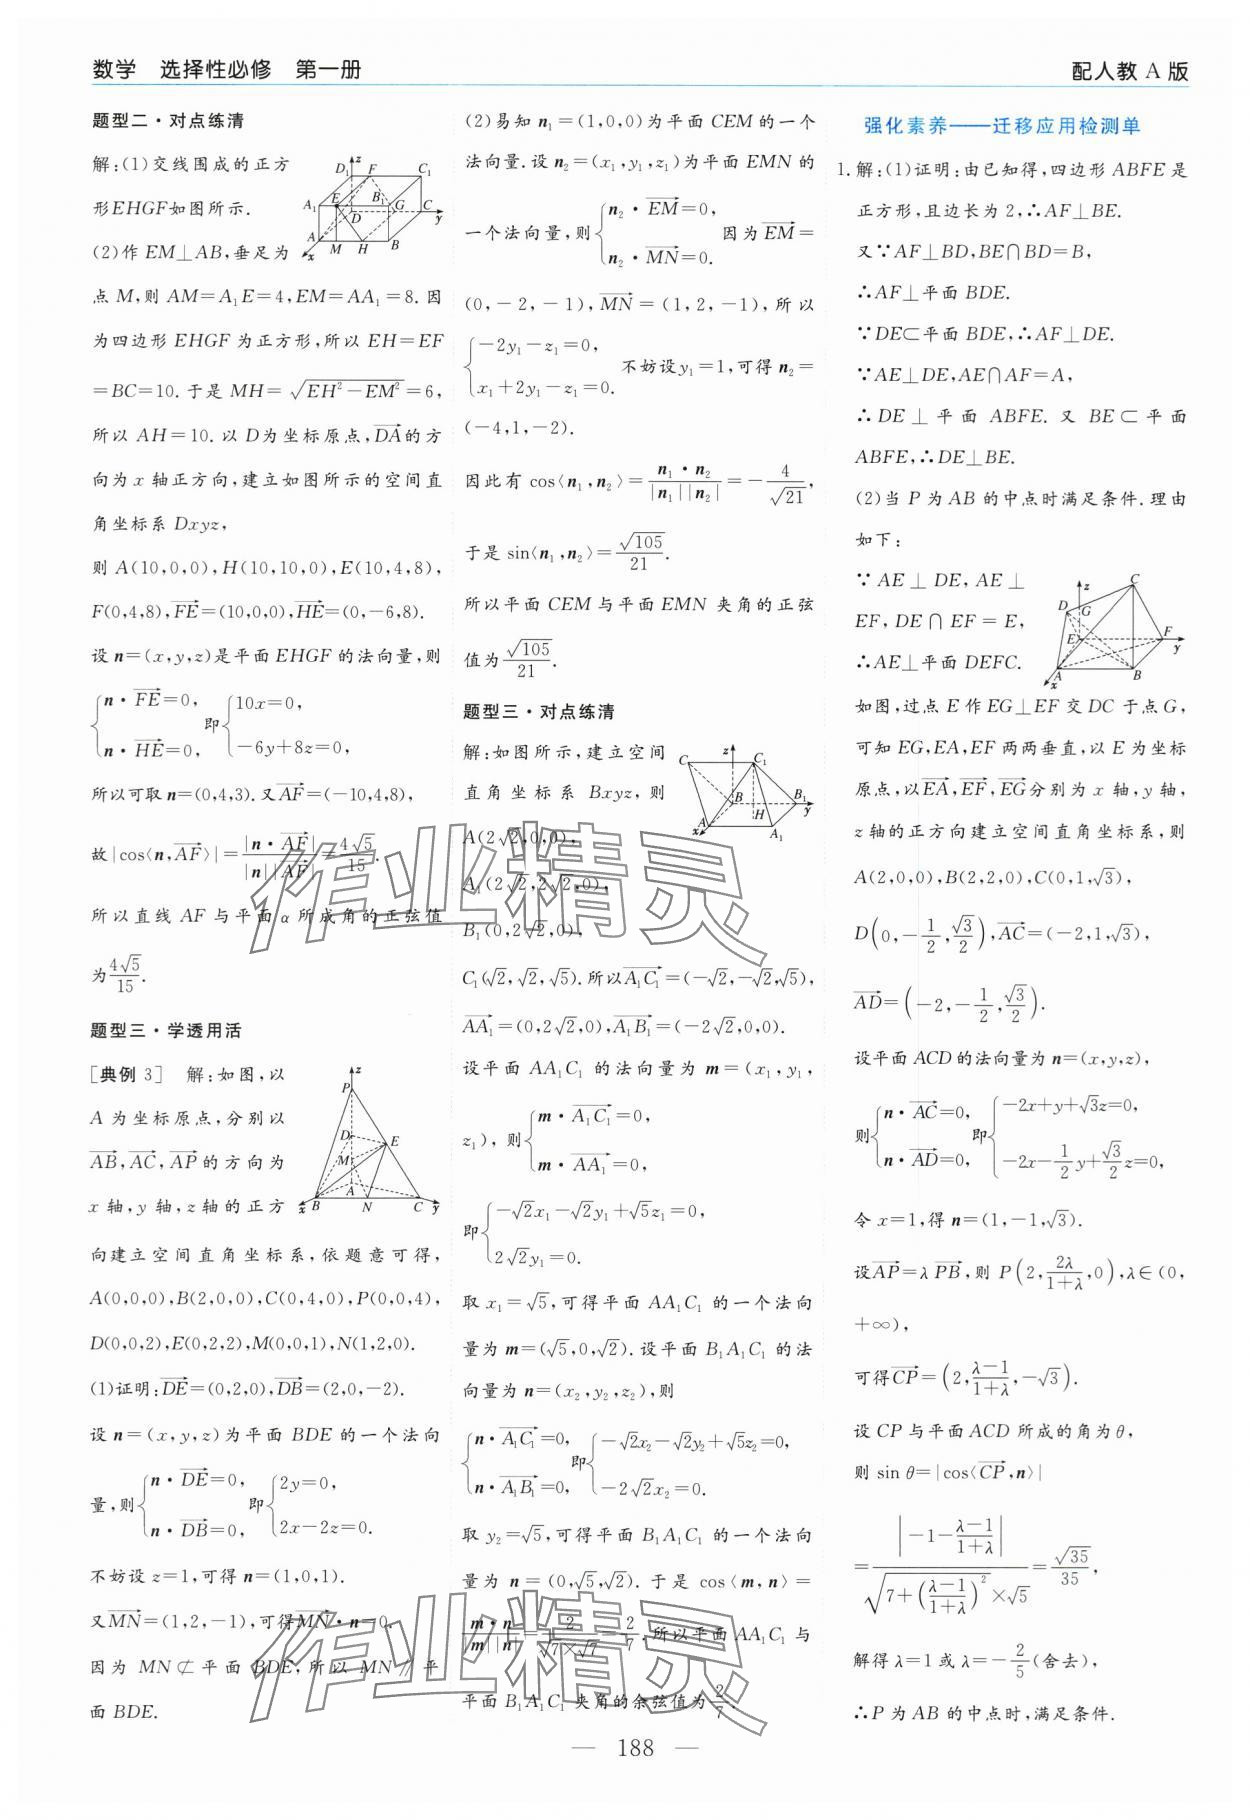 数学 选择性必修 第一册
配人教 A 版
题型二·对点练清
解:(1)交线围成的正方
形EHGF如图所示.
(2)作 EM⊥AB,垂足为
点 M,则 AM=A₁E=4,EM=AA₁=8.因
为四边形 EHGF 为正方形,所以 EH=EF
=BC=10.于是 MH=√(EH²-EM²)=6,
所以 AH=10.以 D为坐标原点,DA→的方
向为 x 轴正方向,建立如图所示的空间直
角坐标系 Dxyz,
则 A(10,0,0),H(10,10,0),E(10,4,8),
F(0,4,8),FE→=(10,0,0),HE→=(0,-6,8).
设 n=(x,y,z)是平面 EHGF 的法向量,则
{n·FE→=0, n·HE→=0, 即{10x=0, -6y+8z=0,
所以可取 n=(0,4,3).又AF→=(-10,4,8),
故|cos⟨n,AF→⟩|=|n·AF→|/(|n||AF→|)=4√5/15.
所以直线 AF 与平面 α 所成角的正弦值
为4√5/15.
题型三·学透用活
[典例 3] 解:如图,以
A 为坐标原点,分别以
AB→,AC→,AP→的方向为
x 轴,y 轴,z轴的正方
向建立空间直角坐标系,依题意可得,
A(0,0,0),B(2,0,0),C(0,4,0),P(0,0,4),
D(0,0,2),E(0,2,2),M(0,0,1),N(1,2,0).
(1)证明:DE→=(0,2,0),DB→=(2,0,-2).
设 n=(x,y,z)为平面 BDE 的一个法向
量,则{n·DE→=0, n·DB→=0, 即{2y=0, 2x-2z=0.
不妨设 z=1,可得 n=(1,0,1).
又MN→=(1,2,-1),可得MN→·n=0.
因为 MN⊄平面 BDE,所以 MN∥平
面 BDE.
(2)易知 n₁=(1,0,0)为平面 CEM的一个
法向量.设 n₂=(x₁,y₁,z₁)为平面 EMN 的
一个法向量,则{n₂·EM→=0, n₂·MN→=0. 因为EM→=
(0,-2,-1),MN→=(1,2,-1),所以
{-2y₁-z₁=0, x₁+2y₁-z₁=0. 不妨设y₁=1,可得 n₂=
(-4,1,-2).
因此有 cos⟨n₁,n₂⟩=n₁·n₂/(|n₁||n₂|)=-4/√21,
于是 sin⟨n₁,n₂⟩=√105/21.
所以平面 CEM 与平面 EMN 夹角的正弦
值为√105/21.
题型三·对点练清
解:如图所示,建立空间
直角坐标系 Bxyz,则
A(2√2,0,0),
A₁(2√2,2√2,0),
B₁(0,2√2,0),
C₁(√2,√2,√5).所以A₁C₁→=(-√2,-√2,√5),
AA₁→=(0,2√2,0),A₁B₁→=(-2√2,0,0).
设平面 AA₁C₁ 的法向量为 m=(x₁,y₁,
z₁),则{m·A₁C₁→=0, m·AA₁→=0,
即{-√2x₁-√2y₁+√5z₁=0, 2√2y₁=0.
取 x₁=√5,可得平面 AA₁C₁ 的一个法向
量为 m=(√5,0,√2).设平面 B₁A₁C₁ 的法
向量为 n=(x₂,y₂,z₂),则
{n·A₁C₁→=0, n·A₁B₁→=0, 即{-√2x₂-√2y₂+√5z₂=0, -2√2x₂=0.
取 y₂=√5,可得平面 B₁A₁C₁ 的一个法向
量为 n=(0,√5,√2).于是 cos⟨m,n⟩=
m·n/(|m||n|)=2/(√7×√7)=2/7,所以平面 AA₁C₁ 与
平面 B₁A₁C₁ 夹角的余弦值为2/7.
强化素养——迁移应用检测单
1.解:(1)证明:由已知得,四边形 ABFE 是
正方形,且边长为 2,∴AF⊥BE.
又∵AF⊥BD,BE∩BD=B,
∴AF⊥平面 BDE.
∵DE⊂平面 BDE,∴AF⊥DE.
∵AE⊥DE,AE∩AF=A,
∴DE⊥平面 ABFE.又 BE⊂平面
ABFE,∴DE⊥BE.
(2)当 P 为 AB 的中点时满足条件.理由
如下:
∵AE⊥DE,AE⊥
EF,DE∩EF=E,
∴AE⊥平面 DEFC.
如图,过点 E 作 EG⊥EF 交 DC 于点 G,
可知 EG,EA,EF 两两垂直,以 E 为坐标
原点,以EA→,EF→,EG→分别为 x 轴,y 轴,
z 轴的正方向建立空间直角坐标系,则
A(2,0,0),B(2,2,0),C(0,1,√3),
D(0,-1/2,√3/2),AC→=(-2,1,√3),
AD→=(-2,-1/2,√3/2).
设平面 ACD 的法向量为 n=(x,y,z),
则{n·AC→=0, n·AD→=0, 即{-2x+y+√3z=0, -2x-1/2y+√3/2z=0,
令 x=1,得 n=(1,-1,√3).
设AP→=λPB→,则 P(2,2λ/(1+λ),0),λ∈(0,
+∞),
可得CP→=(2,(λ-1)/(1+λ),-√3).
设 CP 与平面 ACD 所成的角为 θ,
则 sin θ=|cos⟨CP→,n⟩|
=|-1-(λ-1)/(1+λ)|/(√(7+((λ-1)/(1+λ))²)×√5)=√35/35,
解得 λ=1 或 λ=-2/5(舍去),
∴P 为 AB 的中点时,满足条件.
作业精灵
作业精灵
— 188 —